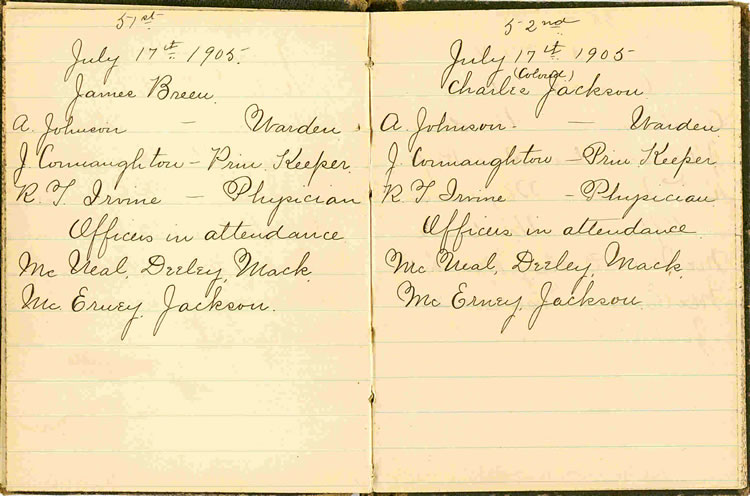 51st
July 17th 1905.
James Breen
A. Johnson — Warden
J. Connaughton — Prin. Keeper
R T Irvine — Physician
Officers in attendance
Mc Neal, Deeley, Mack
Mc Erney, Jackson.
52nd
July 17th 1905
(Colored)
Charles Jackson
A. Johnson. — Warden
J. Connaughton — Prin Keeper
R T Irvine — Physician
Officers in attendance
Mc Neal, Deeley, Mack,
Mc Erney, Jackson